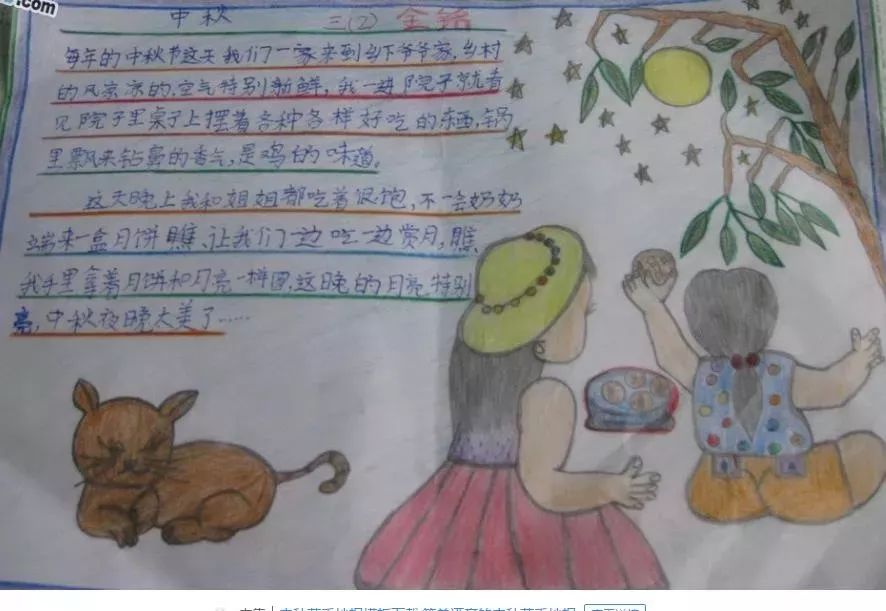 .com
中秋 三(2) 金
每年的中秋节这天我们一家来到乡下爷爷家,乡村
的风景凉的,空气特别新鲜,我一进院子就看
见院子里桌子上摆着各种各样好吃的东西,锅
里飘来钻鼻的香气,是鸡的味道。
这天晚上我和姐姐都吃着很饱,不一会奶奶
端来一盒月饼瞧、让我们一边吃一边赏月,瞧
我手里拿着月饼和月亮一样圆,这晚的月亮特别
亮,中秋夜晚太美了……